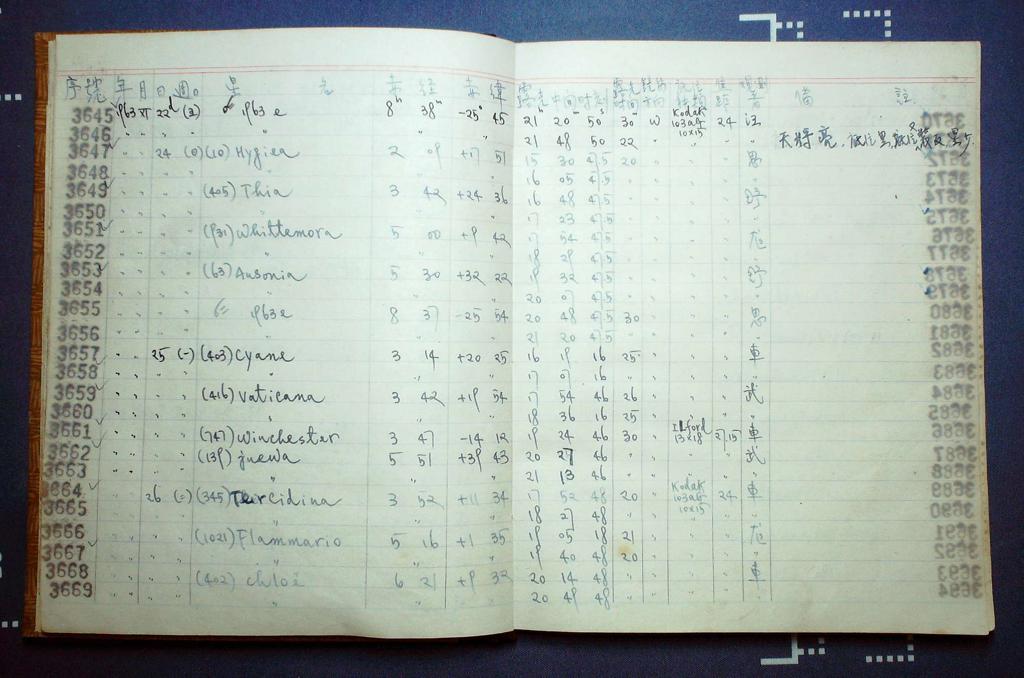 序號 年 月 日 週 星 名 赤 經 赤 緯 露光 中間 時刻 露光 時間 備 註
3645 1963 VI 22d (3) 1963 e 8h 38m -25° 45 21 20 50 30 W Kodak 103aO 10x15 24 汪
3646 " " " " " 21 48 50 22 天將亮
3647 " " 24 (0) (10) Hygiea 2 09 +17 51 15 30 45 20
3648 " 16 05 45
3649 (405) Thia 3 42 +24 36 16 48 45 野
3650 " 17 23 45
3651 (931) Whittemora 5 00 +9 42 17 54 45
3652 " 18 29 45
3653 (63) Ausonia 5 30 +32 22 19 32 45 野
3654 " 20 07 45
3655 1963e 8 37 -25 54 20 48 45 30
3656 " 21 20 45
3657 25 (一) (403) Cyane 3 14 +20 25 16 19 16 25 車
3658 " 17 07 16
3659 (416) Vaticana 3 42 +19 54 17 54 46 26 武
3660 " 18 36 16 25
3661 (747) Winchester 3 47 -14 12 19 24 46 30 Ilford 13x18 2,15 車
3662 (139) Juewa 5 51 +39 43 20 27 46 武
3663 " 21 13 46
3664 26 (二) (345) Tercidina 3 52 +11 34 17 52 48 20 Kodak 103aO 10x15 24 車
3665 " 18 27 48
3666 (1021) Flammario 5 16 +1 35 19 05 18 21
3667 " 19 40 48 20
3668 (402) Chloë 6 21 +9 32 20 14 48 車
3669 " 20 49 48